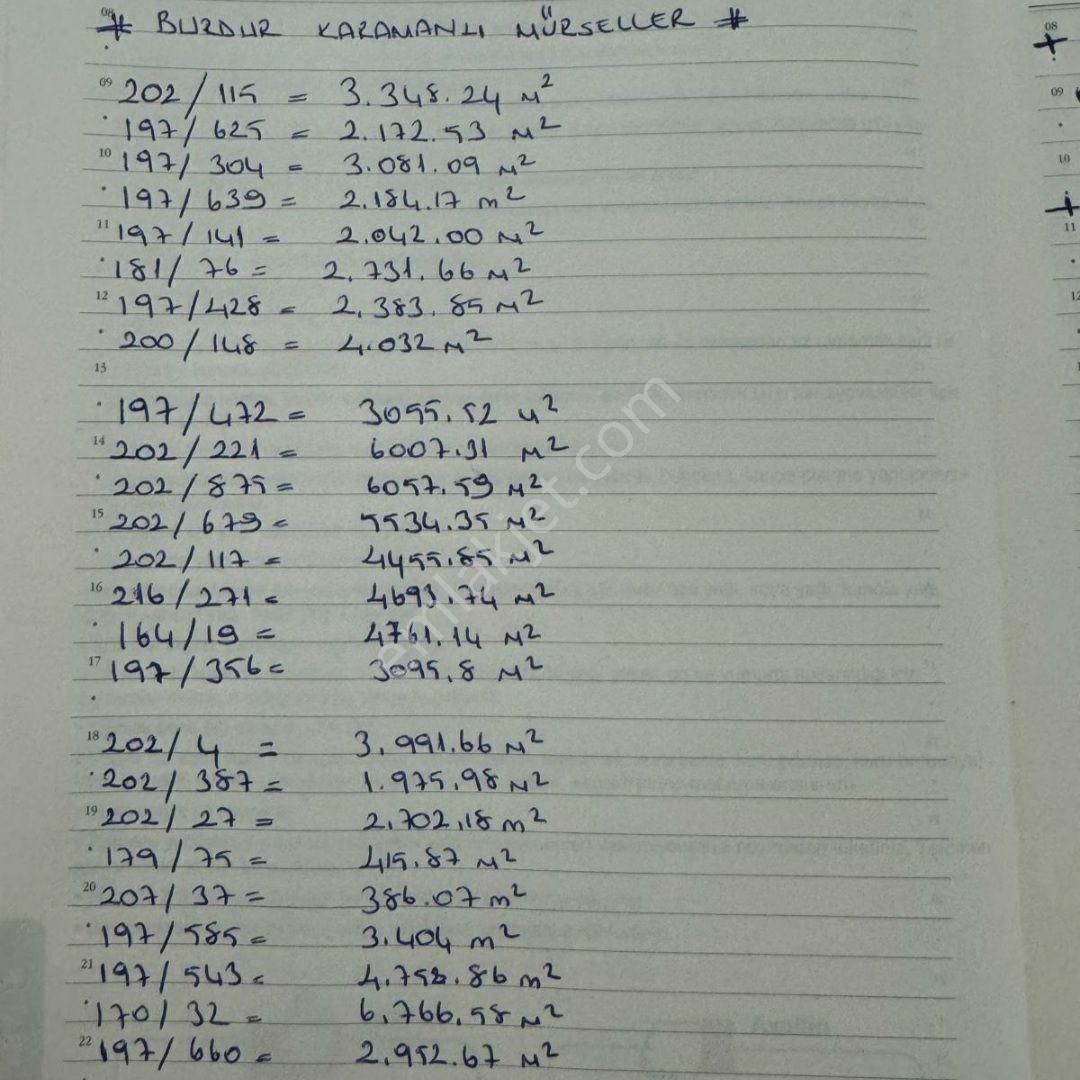 # BURDUR KARAMANLI MÜRSELLER #
08
09 202/115 = 3.348.24 M²
197/625 = 2.172.53 M²
10 197/304 = 3.081.09 M²
197/639 = 2.184.17 m²
11 197/141 = 2.042.00 M²
181/76 = 2.731.66 M²
12 197/428 = 2.383.85 M²
200/148 = 4.032 M²
13
197/472 = 3055.52 M²
14 202/221 = 6007.31 M²
202/875 = 6057.59 M²
15 202/679 = 5534.35 M²
202/117 = 4455.85 M²
16 216/271 = 4693.74 M²
164/19 = 4761.14 M²
17 197/356 = 3095.8 M²
18 202/4 = 3.991.66 M²
202/387 = 1.975.98 M²
19 202/27 = 2.702.18 m²
179/75 = 415.87 M²
20 207/37 = 386.07 m²
197/585 = 3.404 m²
21 197/543 = 4.758.86 m²
170/32 = 6.766.58 M²
22 197/660 = 2.952.67 M²
emlakjet.com
08
09
10
11